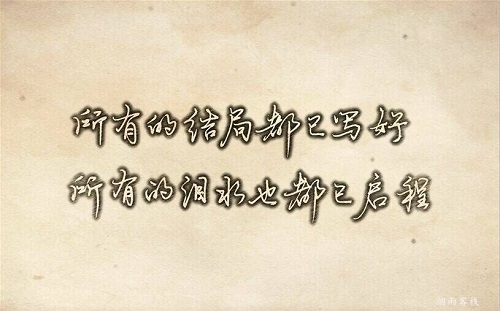 所有的结局都已写好
所有的泪水也都已启程